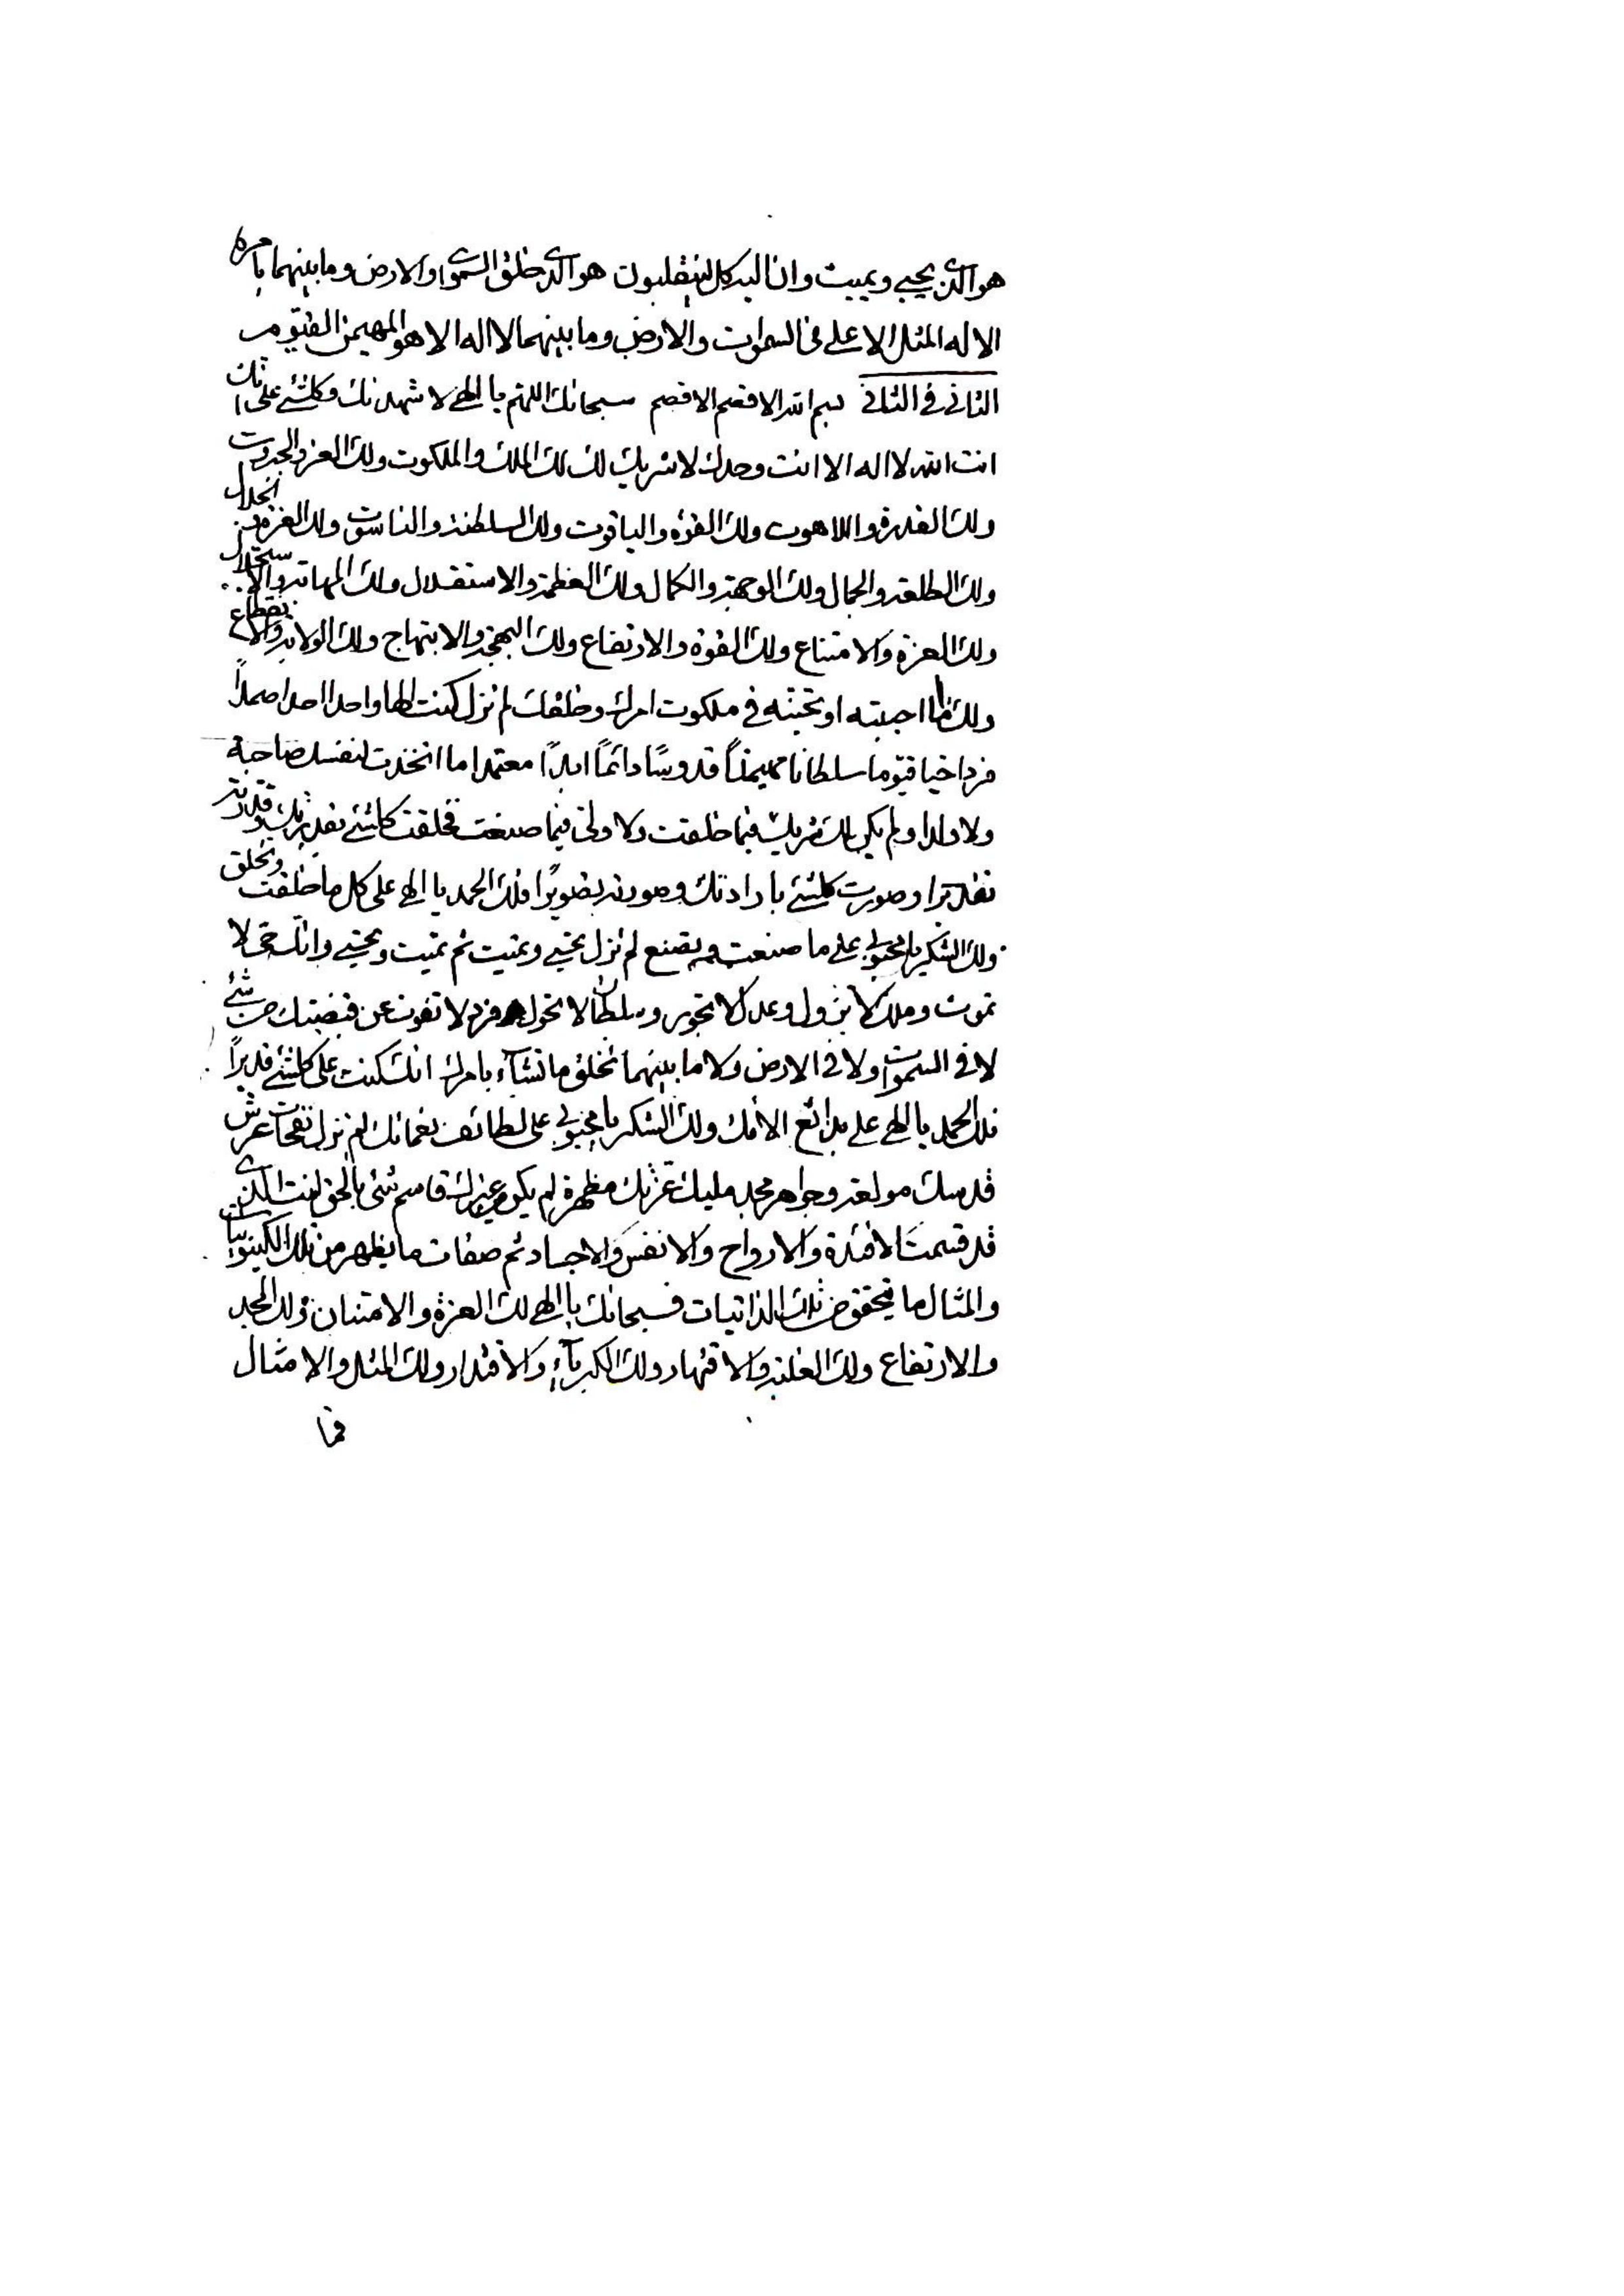 هو الذی یحیی و یمیت و ان الیه کل لینقلبون هو الذی خلق السموات و الارض و ما بینهما بامره
الا له المثل الاعلی فی السموات و الارض و ما بینهما لا اله الا هو المهیمن القیوم
الثانی فی الثانی بسم الله الاقصم الاقصم سبحانک اللهم یا الهی لاشهدنک و کلشیء علی انک
انت الله لا اله الا انت وحدک لا شریک لک لک الملک و الملکوت و لک العز و الجبروت
و لک القدرة و اللاهوت و لک القوة و الیاقوت و لک السلطنة و الناسوت و لک العزة و الجلال
و لک الطلعة و الجمال و لک الوجهة و الکمال و لک العظمة و الاستقلال و لک المهابة و الاستجلال
و لک العزة و الامتناع و لک القوة و الارتفاع و لک البهجة و الابتهاج و لک الولایة و الانقطاع
و لک ما احببته او تحبنه فی ملکوت امرک و خلقک لم تزل کنت الها واحدا احدا صمداً
فردا حیا قیّوما سلطانا مهیمناً قدوسًا دائمًا ابدًا معتمدا ما اتخذت لنفسک صاحبة
و لا ولدا و لم یکن لک شریک فیما خلقت و لا ولی فیما صنعت فخلقت کلشیء بتقدیرک و قدرته
تقدیرا و صورت کلشیء بارادتک و صورته تصویرًا فلک الحمد یا الهی علی کل ما خلقت و تخلق
و لک الشکر یا محبوبی علی ما صنعت و تصنع لم تزل تحیی و تمیت ثم تمیت و تحیی و انک حی لا
تموت و ملک لا تزول و عدل لا تجور و سلطان لا تحول و فرد لا تفوت عن قبضتک من شیء
لا فی السموات و لا فی الارض و لا ما بینهما تخلق ما تشآء بامرک انک کنت علی کلشیء قدیراً
فلک الحمد یا الهی علی بدائع الائک و لک الشکر یا محبوبی علی لطائف نعمائک لم تزل نفحات عرش
قدسک مولعة و جواهر مجد ملیک عزتک مظهرة لم یکن غیرک قاسم شیء بالحق انت الذی
قد قسمت الافئدة و الارواح و الانفس و الاجساد ثم صفات ما یظهر من تلک الکینونیات
و المثال ما یتحقق من تلک الذاتیات فسبحانک یا الهی لک العزة و الامتنان و لک المجد
و الارتفاع و لک الغلبة و الاقتهار و لک الکبریآء و الاقتدار و لک المثل و الامثال
فما